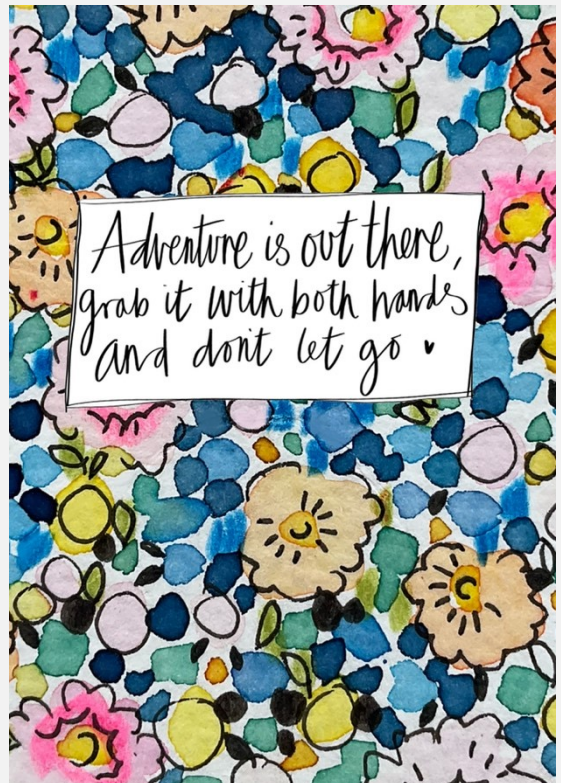 Adventure is out there,
grab it with both hands
and don't let go ♥